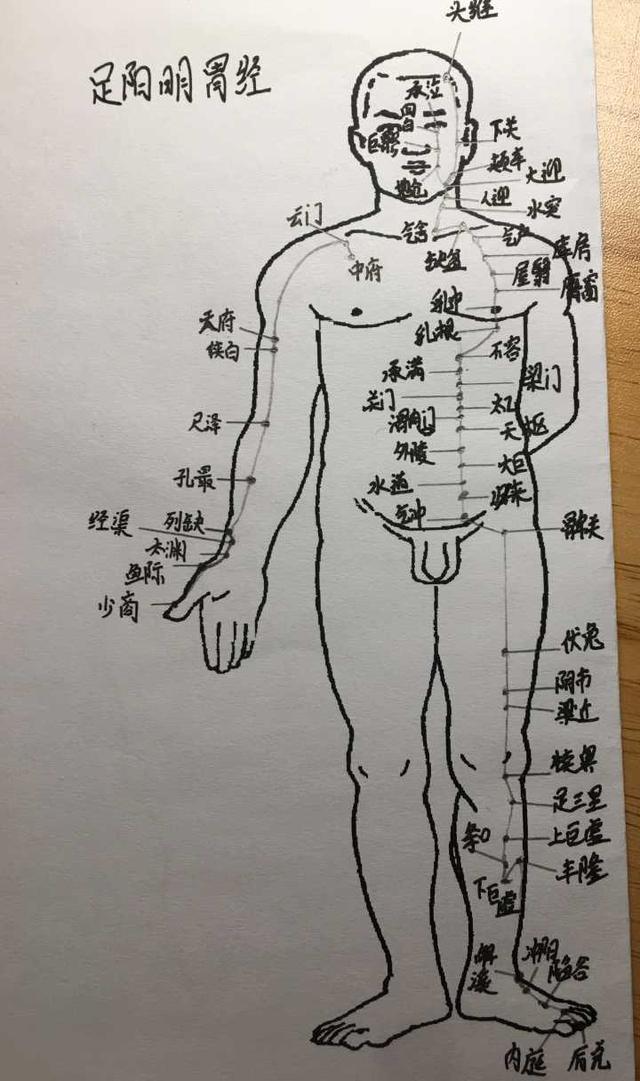 头维
足阳明胃经
承泣
四白
巨髎
下关
颊车
大迎
地仓
人迎
水突
云门
气舍
气户
缺盆
库房
中府
屋翳
膺窗
乳中
天府
乳根
侠白
石容
承满
梁门
关门
太乙
滑肉门
天枢
尺泽
外陵
大巨
孔最
水道
归来
经渠
列缺
气冲
髀关
太渊
鱼际
少商
伏兔
阴市
梁丘
犊鼻
足三里
条口
上巨虚
丰隆
下巨虚
解溪
冲阳
陷谷
内庭
厉兑